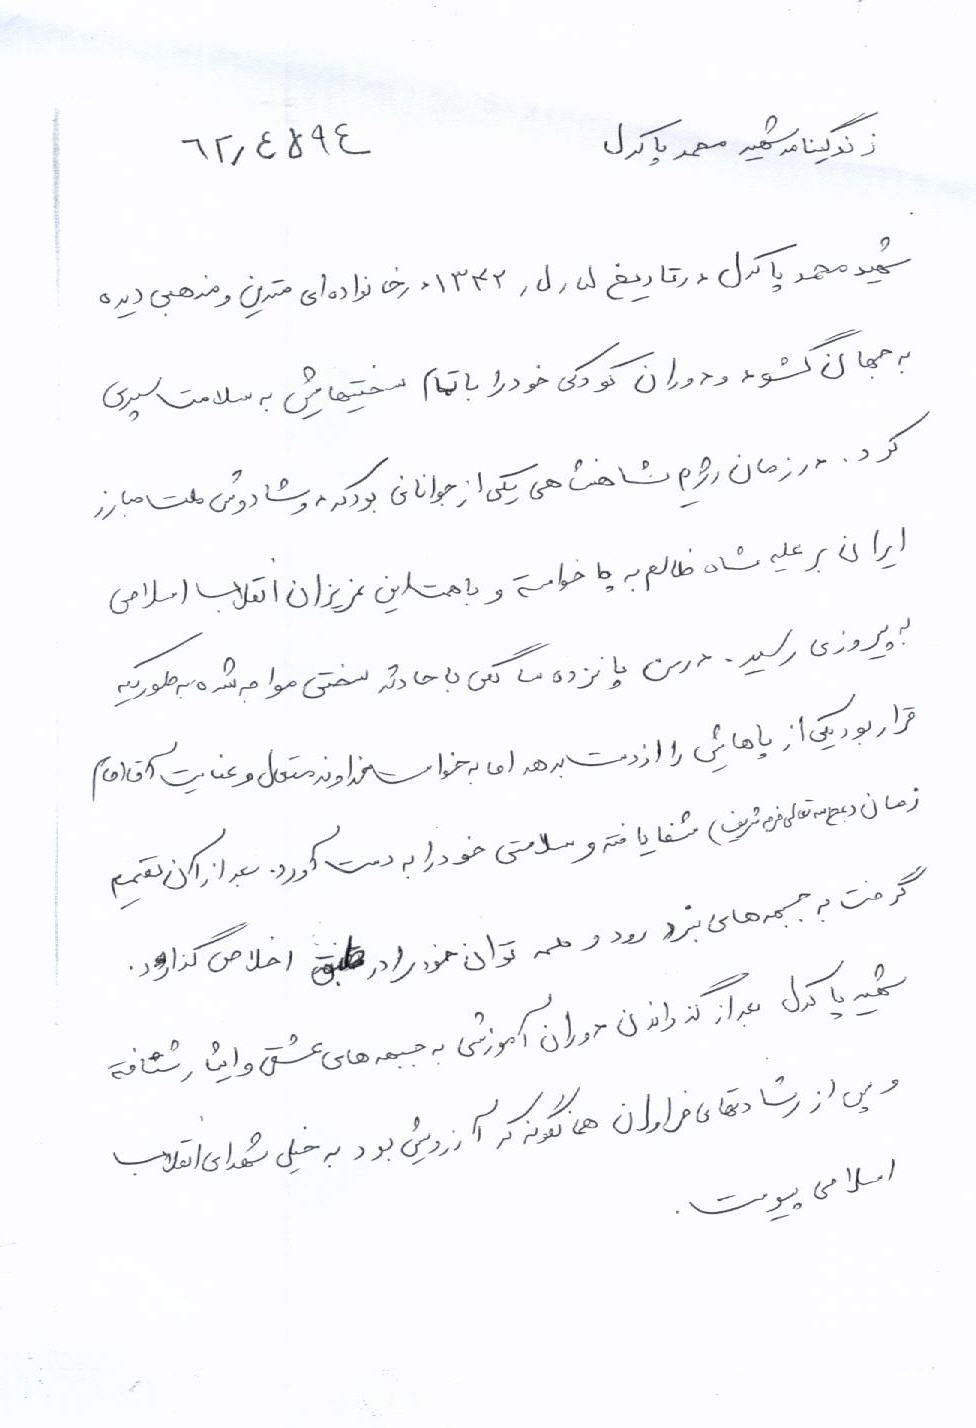 زندگینامه شهید محمد پاکدل ٦٢/٤٥٩٤
شهید محمد پاکدل در تاریخ ۱۳۴۲ در خانواده‌ای متدین و مذهبی دیده
به جهان گشود و دوران کودکی خود را با تمام سختیهایش به سلامت سپری
کرد. در زمان رژیم شاهنشاهی یکی از جوانانی بود که دوشادوش ملت مبارز
ایران بر علیه شاه ظالم به پا خواسته و با همت این عزیزان انقلاب اسلامی
به پیروزی رسید. در سن پانزده سالگی با حادثه سختی مواجه شده به طوریکه
قرار بود یکی از پاهایش را از دست بدهد اما به خواست خداوند متعال و عنایت آقا امام
زمان (عج الله تعالی فرجه شریف) شفا یافته و سلامتی خود را به دست آورد. بعد از آن تصمیم
گرفت به جبهه‌های نبرد رود و همه توان خود را در طبق اخلاص گذارد.
شهید پاکدل بعد از گذراندن دوران آموزشی به جبهه‌های عشق و ایثار شتافته
و پس از رشادتهای فراوان همانگونه که آرزویش بود به خیل شهدای انقلاب
اسلامی پیوست.